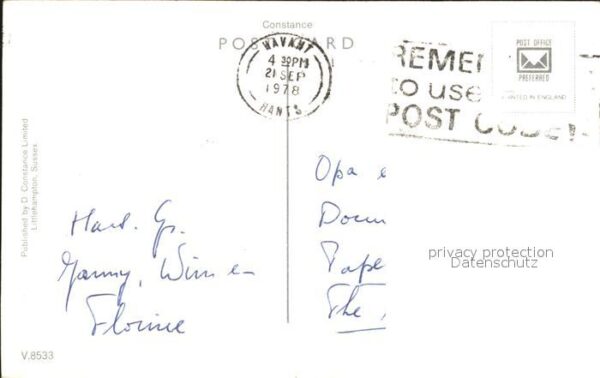 Constance
POSTCARD
HAVANT
4 30PM
21 SEP
1978
HANTS
REMEM
to use
POST CODE
POST OFFICE
PREFERRED
PRINTED IN ENGLAND
Published by D. Constance Limited
Littlehampton, Sussex.
Hart. Gr.
Wim en
Florine
Opa e
Docu
Tape
The
privacy protection
Datenschutz
V.8533